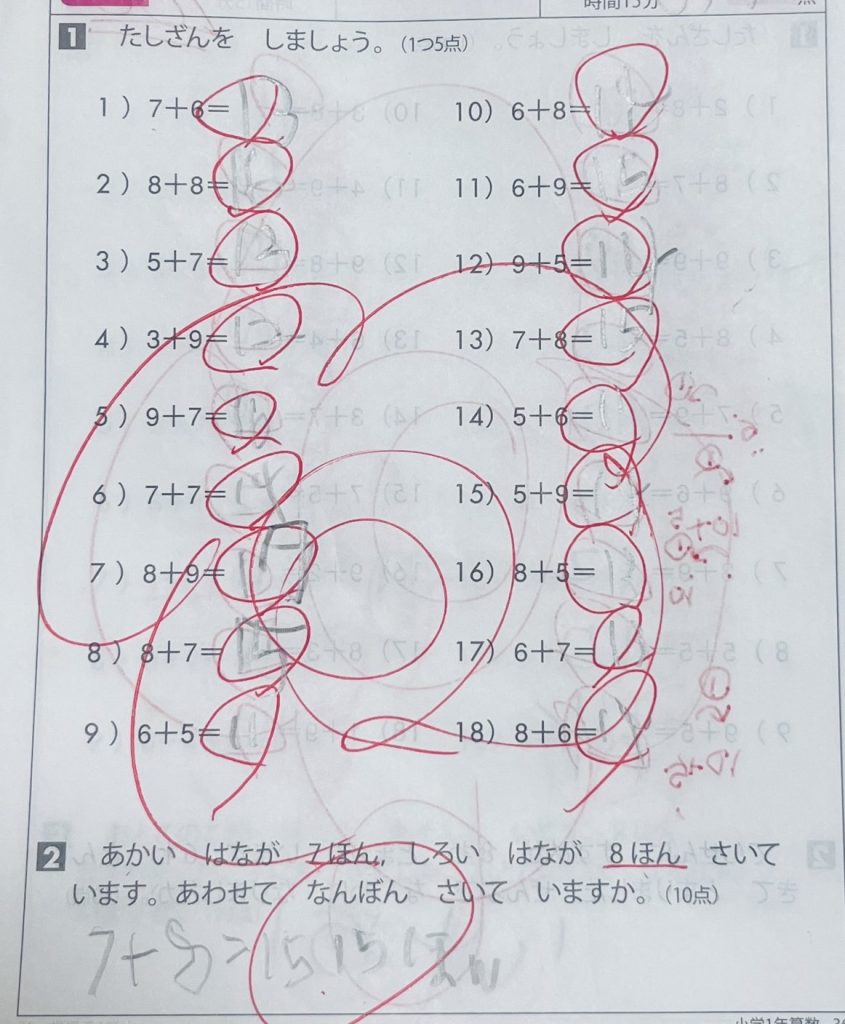 時間15分
1 たしざんを しましょう。(1つ5点)
1) 7+6=13
2) 8+8=16
3) 5+7=12
4) 3+9=12
5) 9+7=16
6) 7+7=14
7) 8+9=17
8) 8+7=15
9) 6+5=11
10) 6+8=14
11) 6+9=15
12) 9+5=14
13) 7+8=15
14) 5+6=11
15) 5+9=14
16) 8+5=13
17) 6+7=
18) 8+6=14
2 あかい はなが 7ほん, しろい はなが 8ほん さいて
います。あわせて なんぼん さいて いますか。(10点)
7+8=15 15ほん
小学1年算数